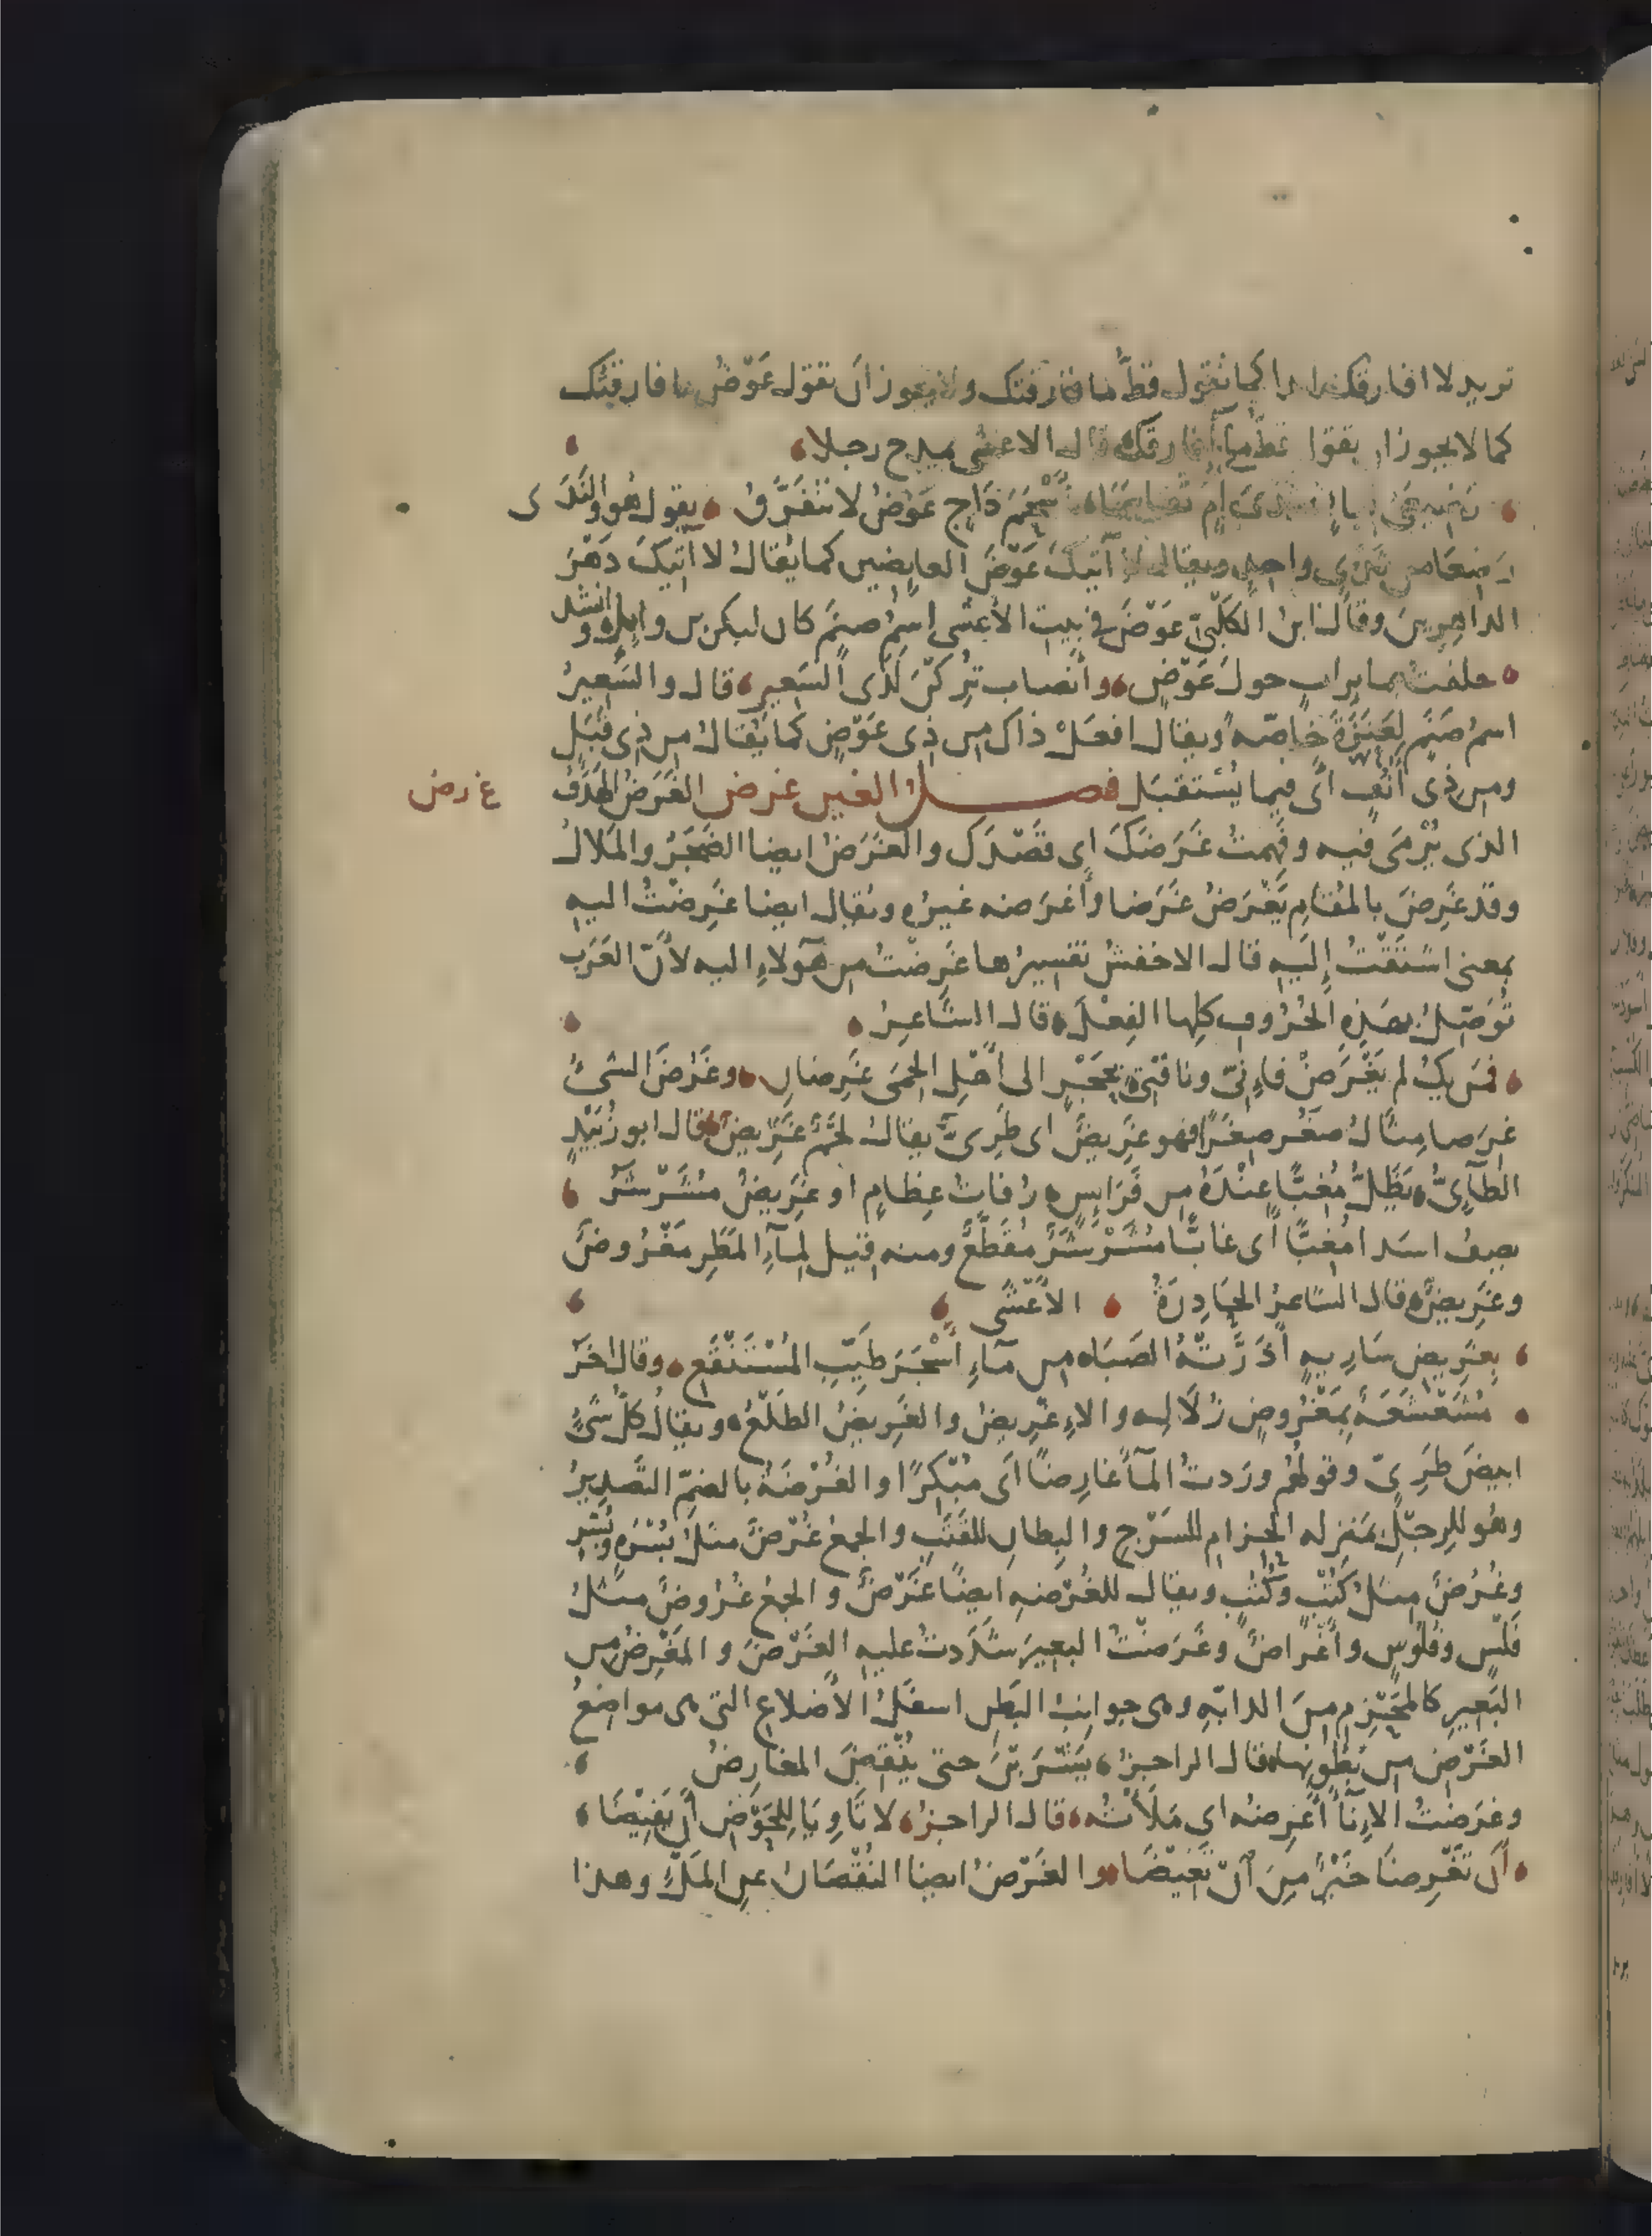 تريد لا افارقك ابدا كما تقول قطُّ ما فارقتك ولا يجوز ان تقول عَوْضُ ما فارقتك
كما لا يجوز ان تقول قطُّ ما أفارقك قال الاعشى يمدح رجلا
رَضِيعَىْ لِبانٍ ثدى امٍ تقاسما بأَسْحَمَ دَاجٍ عَوْضُ لا نتفَرَّقُ يقول هو والنَّدَى
رَضِعَا من ثدىٍ واحدٍ ويقال لا آتيكَ عَوْضَ العايِضين كما يُقالُ لا آتيكَ دَهْرَ
الداهِرِينَ وقال ابن الكَلْبىّ عَوْضُ في بيت الأعشى اسمُ صنمٍ كان لبكرِ بن وايلٍ وانشد
حلفتُ بمايِراتٍ حولَ عَوْضٍ وأنصاب تُرِكْنَ لَدَى السَعِيرِ قال والسَّعِيرُ
اسمُ صَنَمٍ لِعَنَزَةَ خاصّه ويقال افعَلْ ذاك من ذِى عَوْضٍ كما يُقالُ من ذِى قَبَلٍ
ومن ذى أُنُفٍ اى فيما يُسْتقبَل فصلُ الغين غرض الغَرَضُ الهَدَفُ
غ رض
الذى يُرْمَى فيه وفَهِمتُ غَرَضَكَ اى قَصْدَك والغَرَضُ ايضا الضَّجَرُ والمَلالُ
وقد غَرِضَ بالمُقامِ يَغْرَضُ غَرَضا وأغرَضه غيرُه ويُقال ايضا غَرِضْتُ اليهِ
بمعنى اشتَقْتُ إِلَيهِ قال الاخفشُ تفسيرُها غَرِضْتُ من هَؤلاءِ اليه لأنّ العَرَب
تُوصِلُ بهذِهِ الحُرُوفِ كلِها الفِعْلَ قال الشَّاعِرُ
فمن يكُ لم يَغْرَضْ فاءِنّى وناقتِى بحَجْرٍ الى أَهْلِ الحِمَى غَرِضانِ وغَرُضَ الشىُ
غِرَضا مِثالُ صغُر صِغَرًا فهو غَرِيضٌ اى طَرِىٌّ يقالُ لحمٌ غَرِيضٌ قال ابو زُبَيْدٍ
الطآءِىُّ يَظَلُّ مُغِبًّا عِنْدَهُ من فَرَايِسٍ رُفاتُ عِظامٍ او غَرِيضٌ مُشَرْشَرُ
يصِفُ اسَدا مُغِبًّا أى غابًّا مُشَرْشَرٌ مُقَطَّعٌ ومنه قيل لِمآءِ المَطَرِ مَغْرُوضٌ
وغَرِيضٌ قال الشاعرُ الحَادِرَةُ الأَعْشَى
بِغَرِيضِ سَارِيهٍ أَدَرَّتْهُ الصَبَا من مآءِ أَسْجَرَ طَيّبِ المُسْتَنْقَعِ وقال اخَر
مُشَعْشَعَةً بمَغْرُوضٍ زُلَالِ والاءِغْرِيضُ والغَرِيضُ الطَلْعُ ويقالُ كلُّ شىٍ
ابيضَ طَرِىّ وقولهُم ورَدتُ المآءَ غارِضًا اى مُبْكِرًا والغُرْضَةُ بالضمّ التَّصدِيرُ
وهُو للرحْلِ بمَنزِله الحزامِ للسَرْجِ والبِطانِ للقَتَبِ والجمعُ غُرْضٌ مثلُ بُسْرَهٍ وبُسْرٍ
وغُرُضٌ مِثلُ كُتْبٍ وكُتُبٍ ويقال للغُرْضهِ ايضًا غَرْضٌ والجمعُ غُرُوضٌ مثلُ
فَلْسٍ وفُلُوسٍ وأَغْراضٌ وغَرَضْتُ البعيرَ شدَدتُ عليهِ الغَرْضَ والمَغْرِضُ من
البَعِيرِ كالمَحْزِمِ مِنَ الدابّهِ وهى جوانِبُ البَطنِ اسفَلَ الأَضلاعِ التى هى مواضِعُ
الغَرْضِ من بُطُونِها قال الراجزُ يَشْرَبْنَ حتى يُنْقِضَ المَغارِضُ
وغرَضتُ الاءِنآءَ أَغرِضُه اى مَلَأْتُه قال الراجزُ لا تَأوِيَا لِلحَوْضِ أَن يَفِيضَا
أن تَغْرِضَا خَيْرٌ مِن أنْ تَغِيضَا والغَرْضُ ايضا النُقْصَانُ عنِ المَلْءِ وهذا